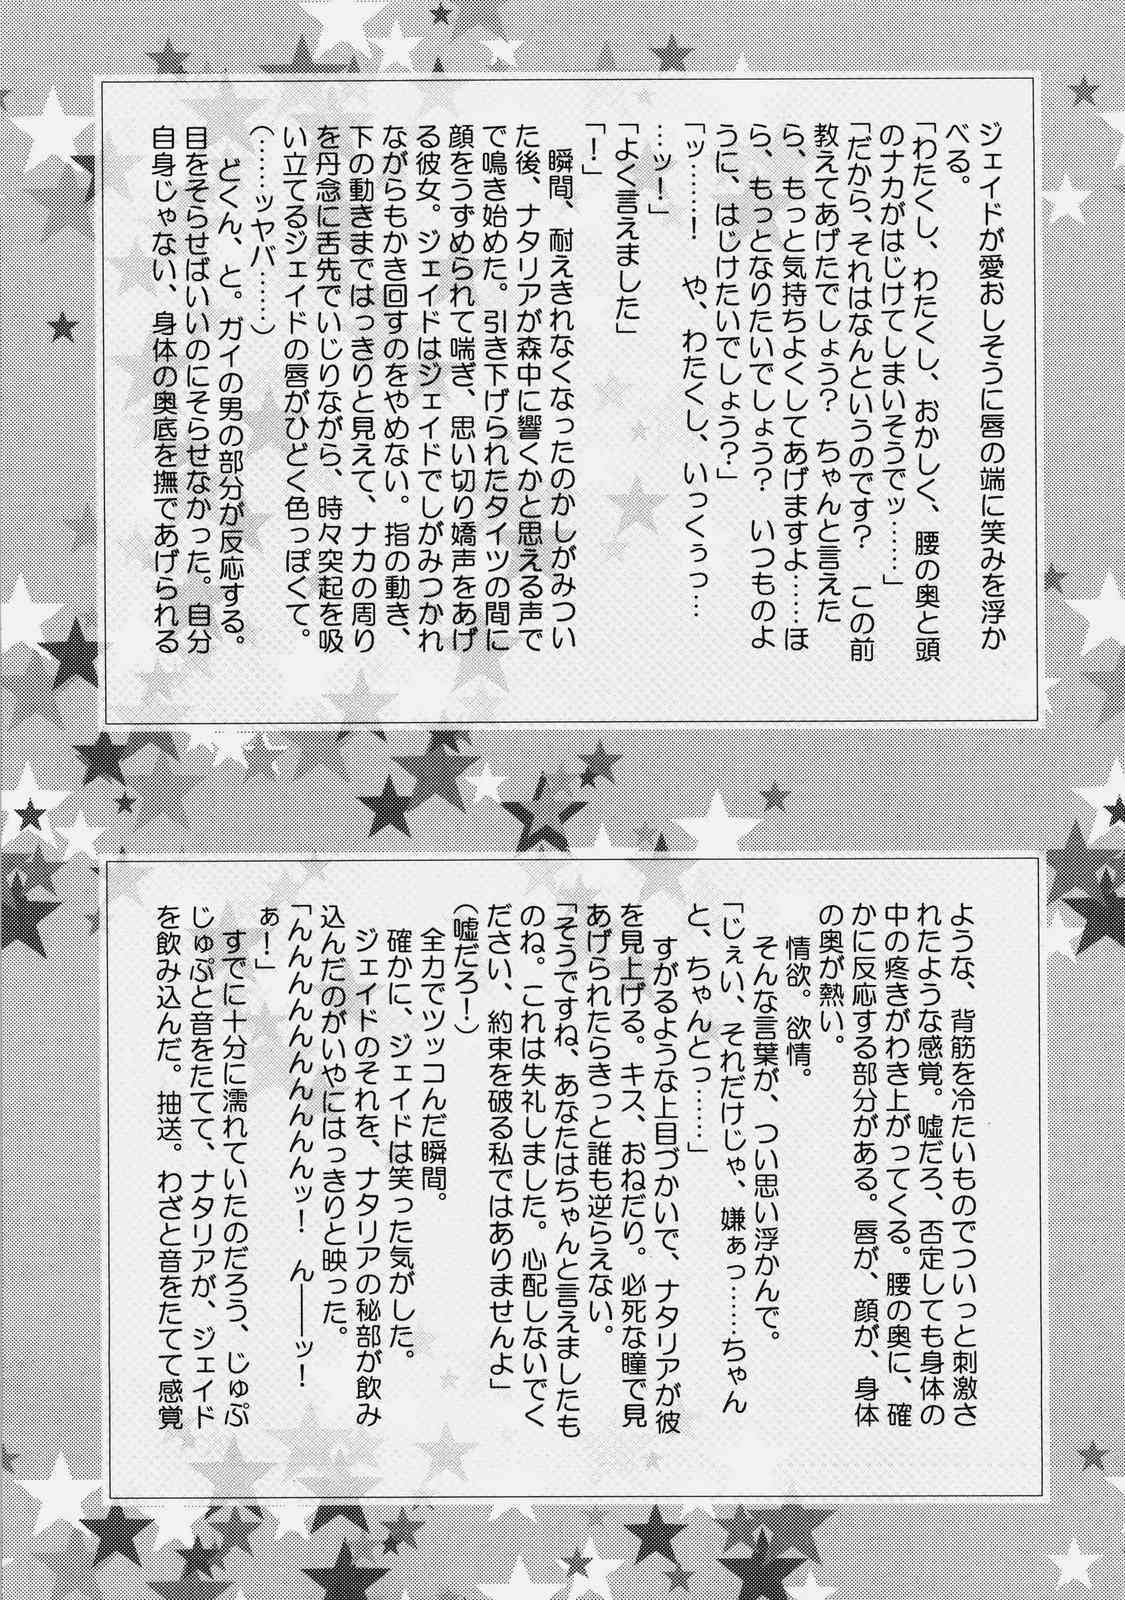 ジェイドが愛おしそうに唇の端に笑みを浮か
べる。
「わたくし、わたくし、おかしく、腰の奥と頭
のナカがはじけてしまいそうでッ……」
「だから、それはなんというのです？　この前
教えてあげたでしょう？　ちゃんと言えた
ら、もっと気持ちよくしてあげますよ……ほ
ら、もっとなりたいでしょう？　いつものよ
うに、はじけたいでしょう？」
「ッ……！　や、わたくし、いっくぅっ…
…ッ！」
「よく言えました」
「！」
　瞬間、耐えきれなくなったのかしがみつい
た後、ナタリアが森中に響くかと思える声で
で鳴き始めた。引き下げられたタイツの間に
顔をうずめられて喘ぎ、思い切り嬌声をあげ
る彼女。ジェイドはジェイドでしがみつかれ
ながらもかき回すのをやめない。指の動き、
下の動きまではっきりと見えて、ナカの周り
を丹念に舌先でいじりながら、時々突起を吸
い立てるジェイドの唇がひどく色っぽくて。
（……ッヤバ……）
　どくん、と。ガイの男の部分が反応する。
目をそらせばいいのにそらせなかった。自分
自身じゃない、身体の奥底を撫であげられる
ような、背筋を冷たいものでついっと刺激さ
れたような感覚。嘘だろ、否定しても身体の
中の疼きがわき上がってくる。腰の奥に、確
かに反応する部分がある。唇が、顔が、身体
の奥が熱い。
　情欲。欲情。
　そんな言葉が、つい思い浮かんで。
「じぇい、それだけじゃ、嫌ぁっ……ちゃん
と、ちゃんとっ……」
　すがるような上目づかいで、ナタリアが彼
を見上げる。キス、おねだり。必死な瞳で見
あげられたらきっと誰も逆らえない。
「そうですね、あなたはちゃんと言えましたも
のね。これは失礼しました。心配しないでく
ださい、約束を破る私ではありませんよ」
（嘘だろ！）
　全力でツッコんだ瞬間。
　確かに、ジェイドは笑った気がした。
　ジェイドのそれを、ナタリアの秘部が飲み
込んだのがいやにはっきりと映った。
「んんんんんんんんんッ！　ん――ッ！
ぁ！」
　すでに十分に濡れていたのだろう、じゅぷ
じゅぷと音をたてて、ナタリアが、ジェイド
を飲み込んだ。抽送。わざと音をたてて感覚